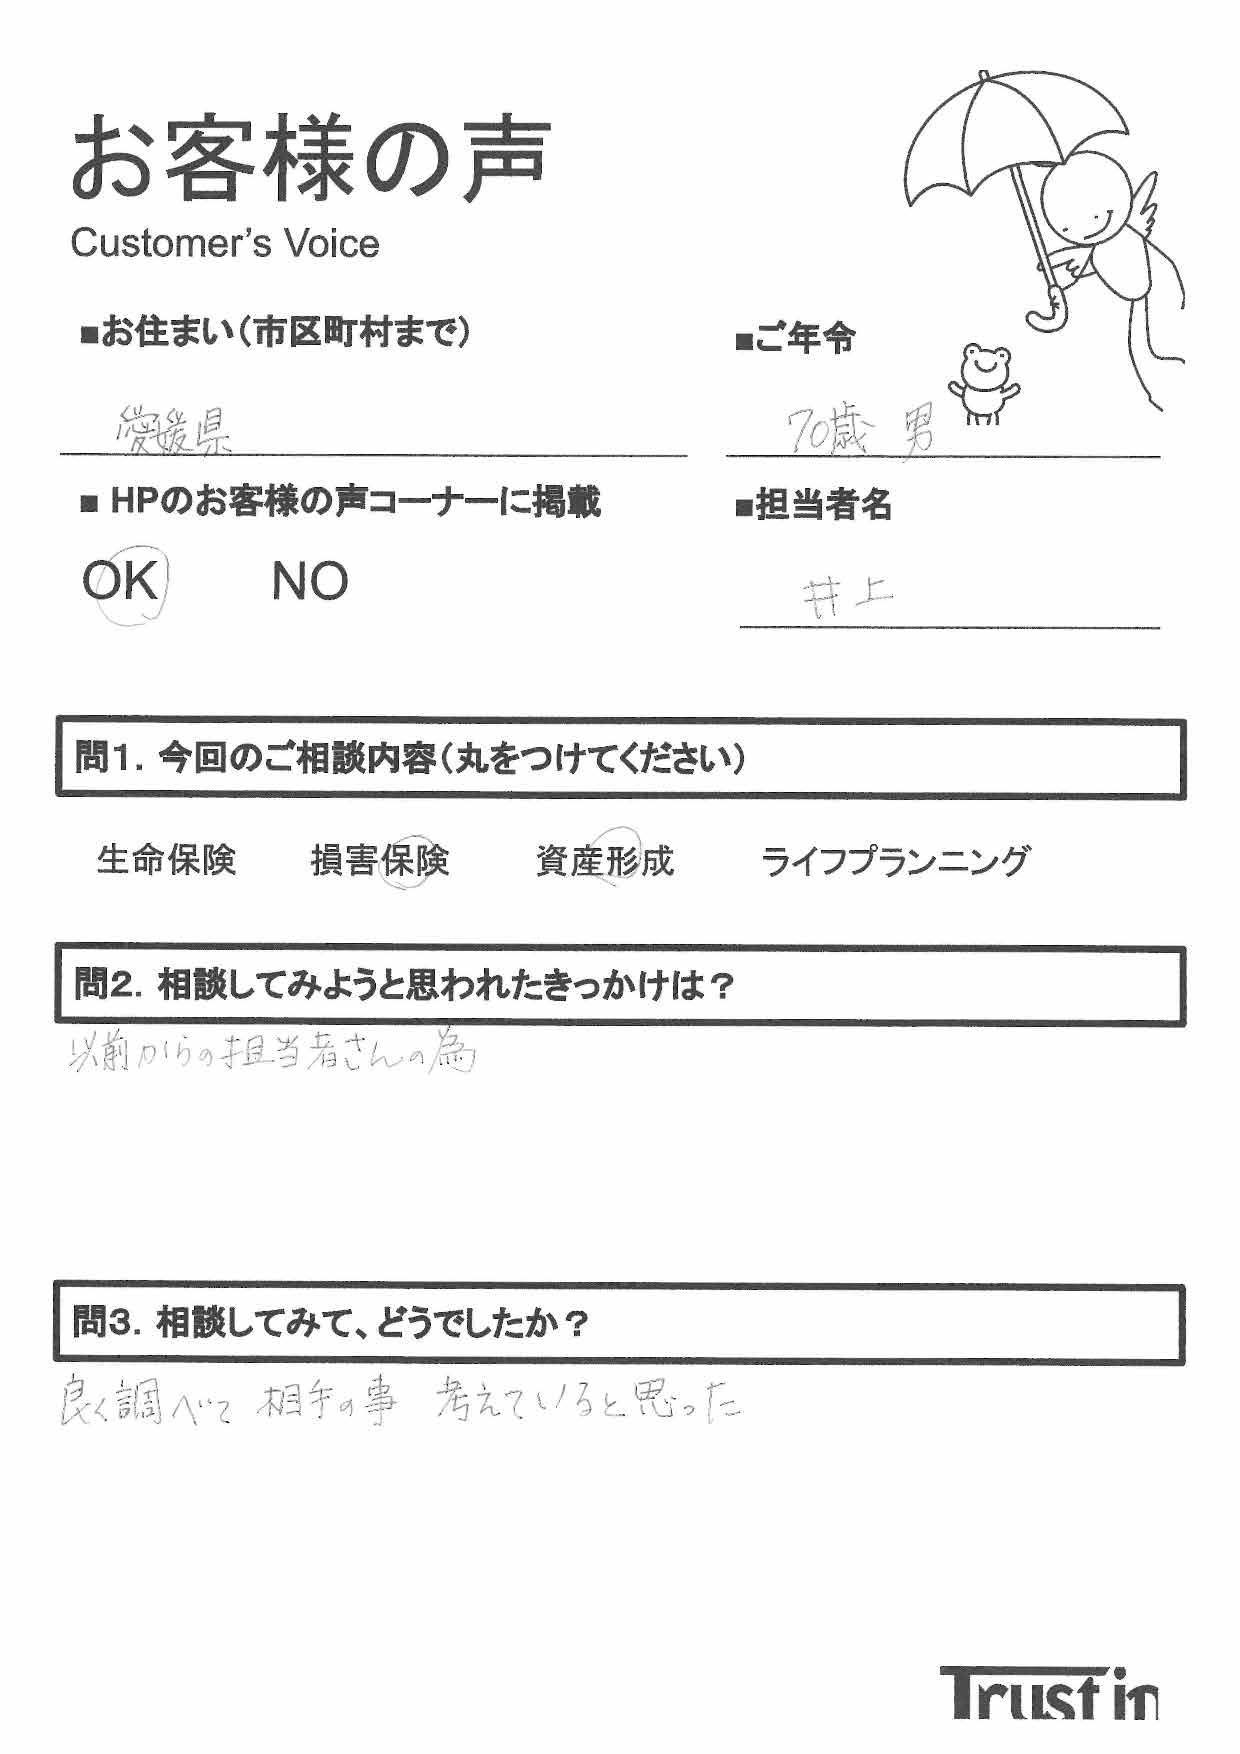 お客様の声
Customer's Voice
■お住まい(市区町村まで)
■ご年令
愛媛県
70歳 男
■ HPのお客様の声コーナーに掲載
■担当者名
OK NO
井上
問1. 今回のご相談内容(丸をつけてください)
生命保険 損害保険 資産形成 ライフプランニング
問2. 相談してみようと思われたきっかけは?
以前からの担当者さんの為
問3. 相談してみて、どうでしたか?
良く調べて 相手の事 考えていると思った
Trust in